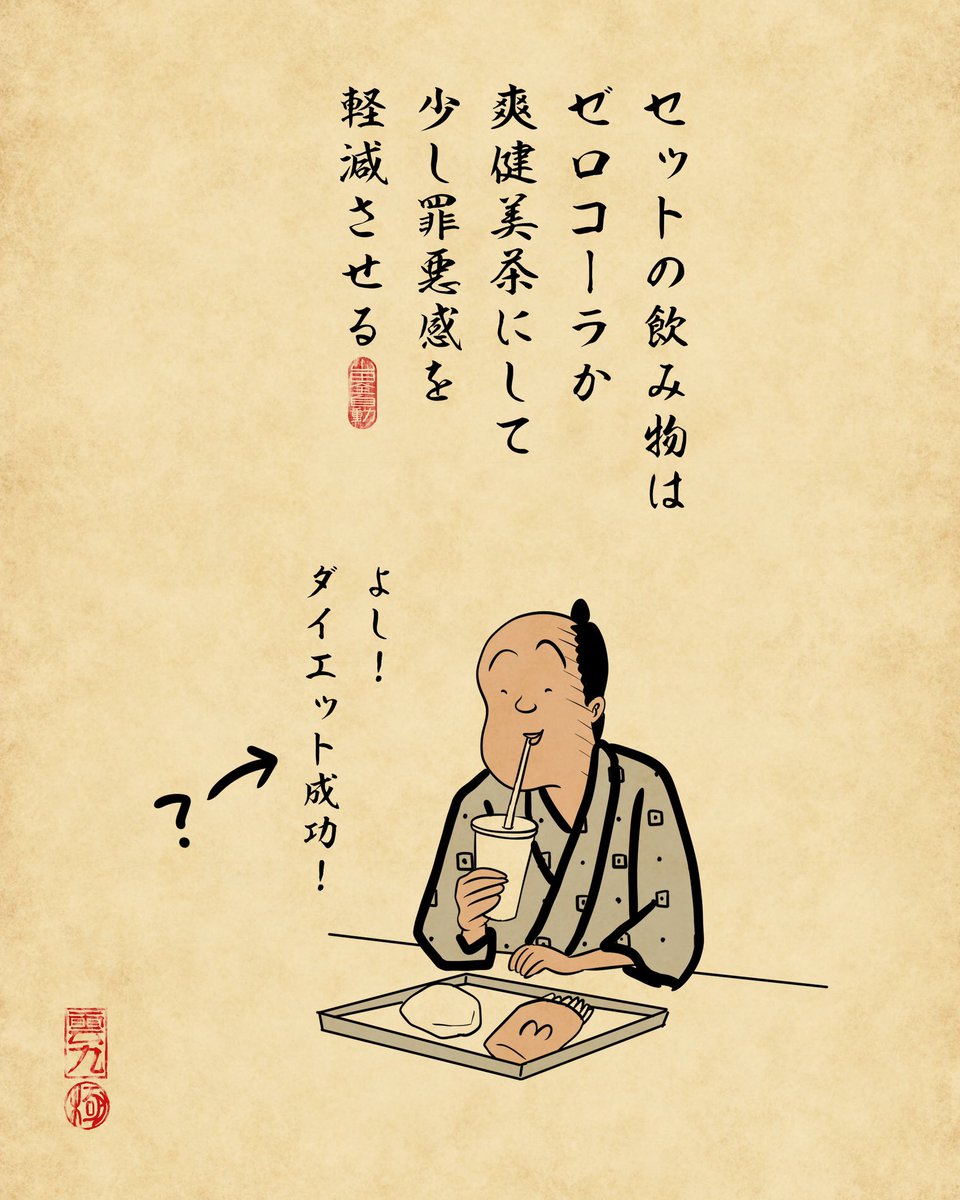 セットの飲み物は
ゼロコーラか
爽健美茶にして
少し罪悪感を
軽減させる
よし！
ダイエット成功！
？